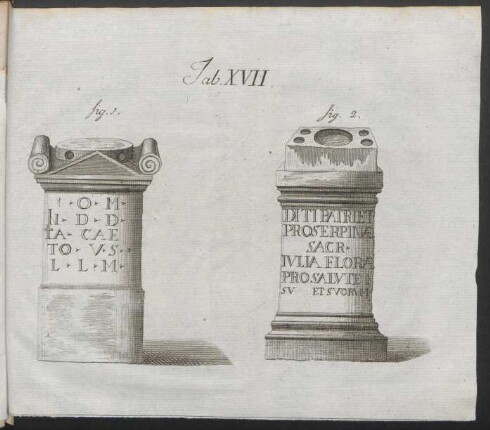 Tab. XVII
fig. 1.
fig. 2.
I · O · M ·
II · D · D
TA · CAE
TO · V · S
L · L · M ·
DITI PATRI ET
PROSERPINÆ
SACR·
IVLIA FLORÆ
PRO SALVTE
SV ET SVORVM